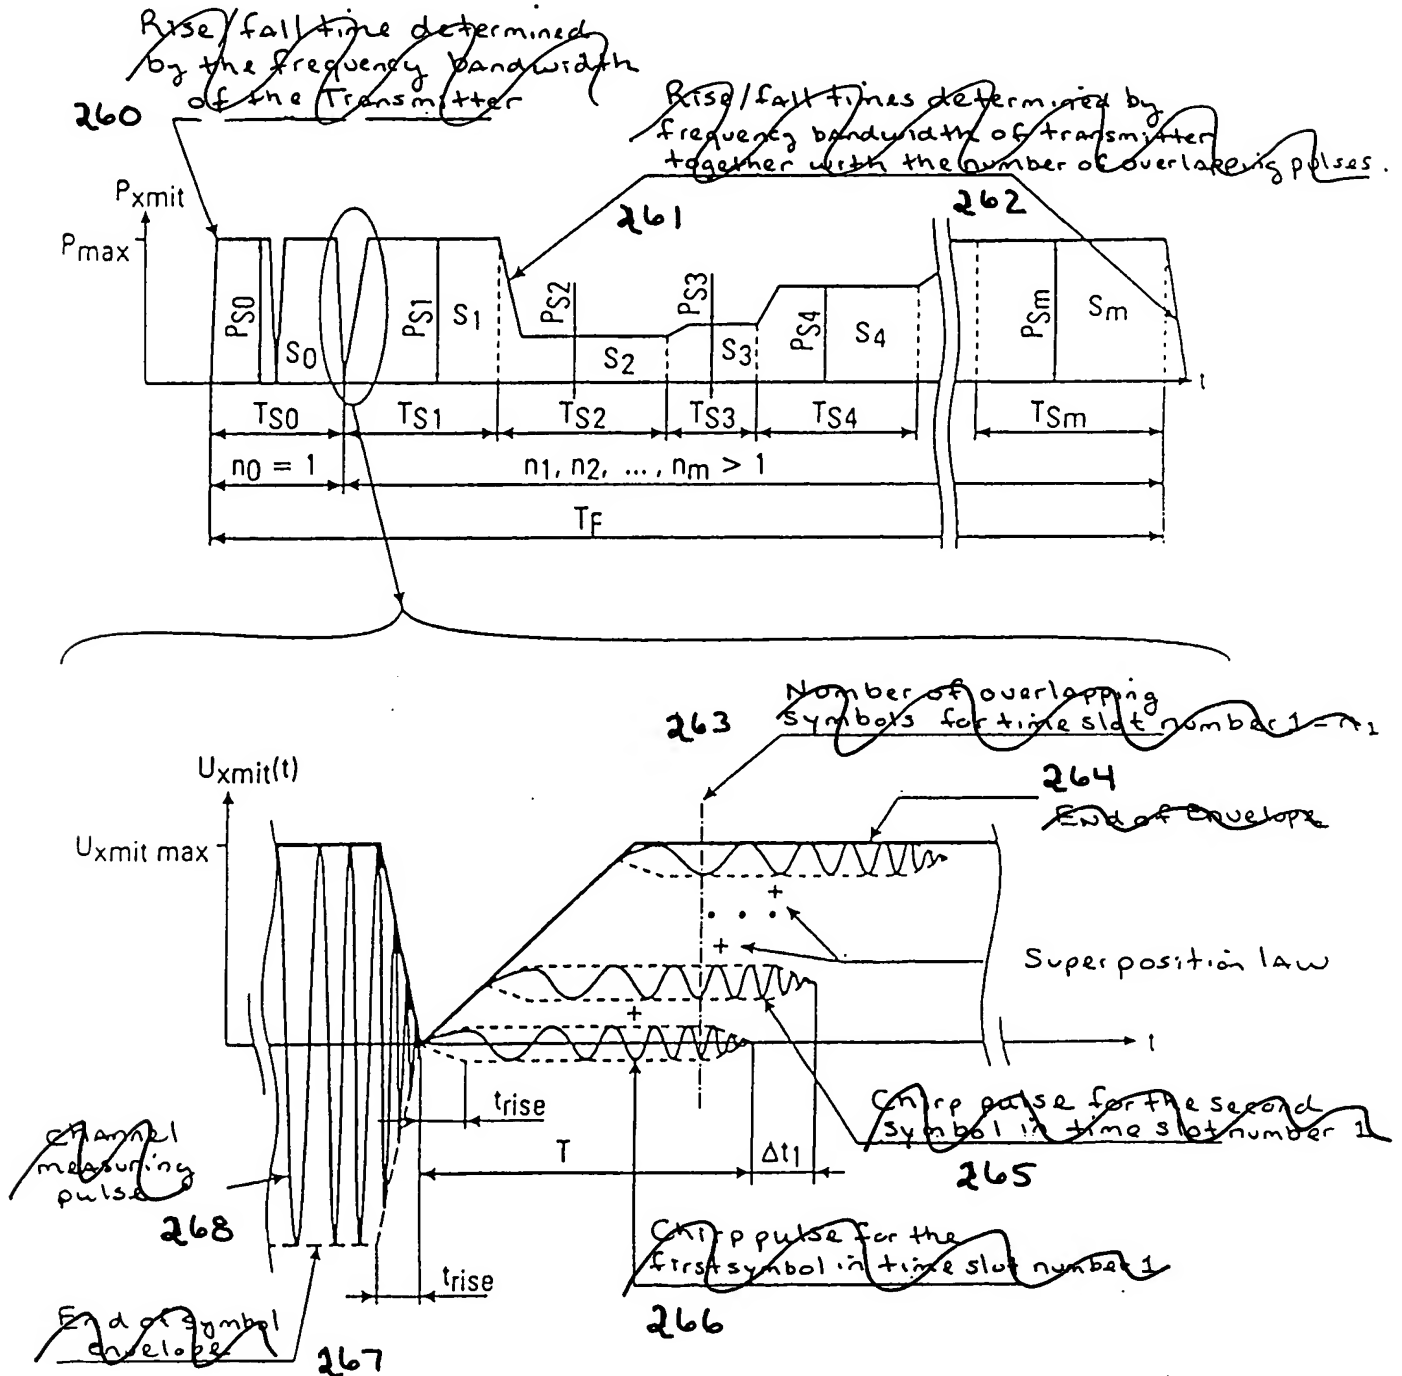 Rise/fall time determined
by the frequency bandwidth
of the Transmitter
260
Rise/fall times determined by
frequency bandwidth of transmitter
together with the number of overlapping pulses.
261
262
Pxmit
Pmax
PS0
S0
PS1
S1
PS2
S2
PS3
S3
PS4
S4
PSm
Sm
t
TS0
TS1
TS2
TS3
TS4
TSm
n0 = 1
n1, n2, ..., nm > 1
TF
263
Number of overlapping
symbols for time slot number 1 = n1
264
End of Envelope
Uxmit(t)
Uxmit max
+
. . .
+
+
Superposition law
t
trise
T
Δt1
Chirp pulse for the second
symbol in time slot number 1
265
channel
measuring
pulse
268
Chirp pulse for the
first symbol in time slot number 1
266
trise
End of symbol
envelope
267